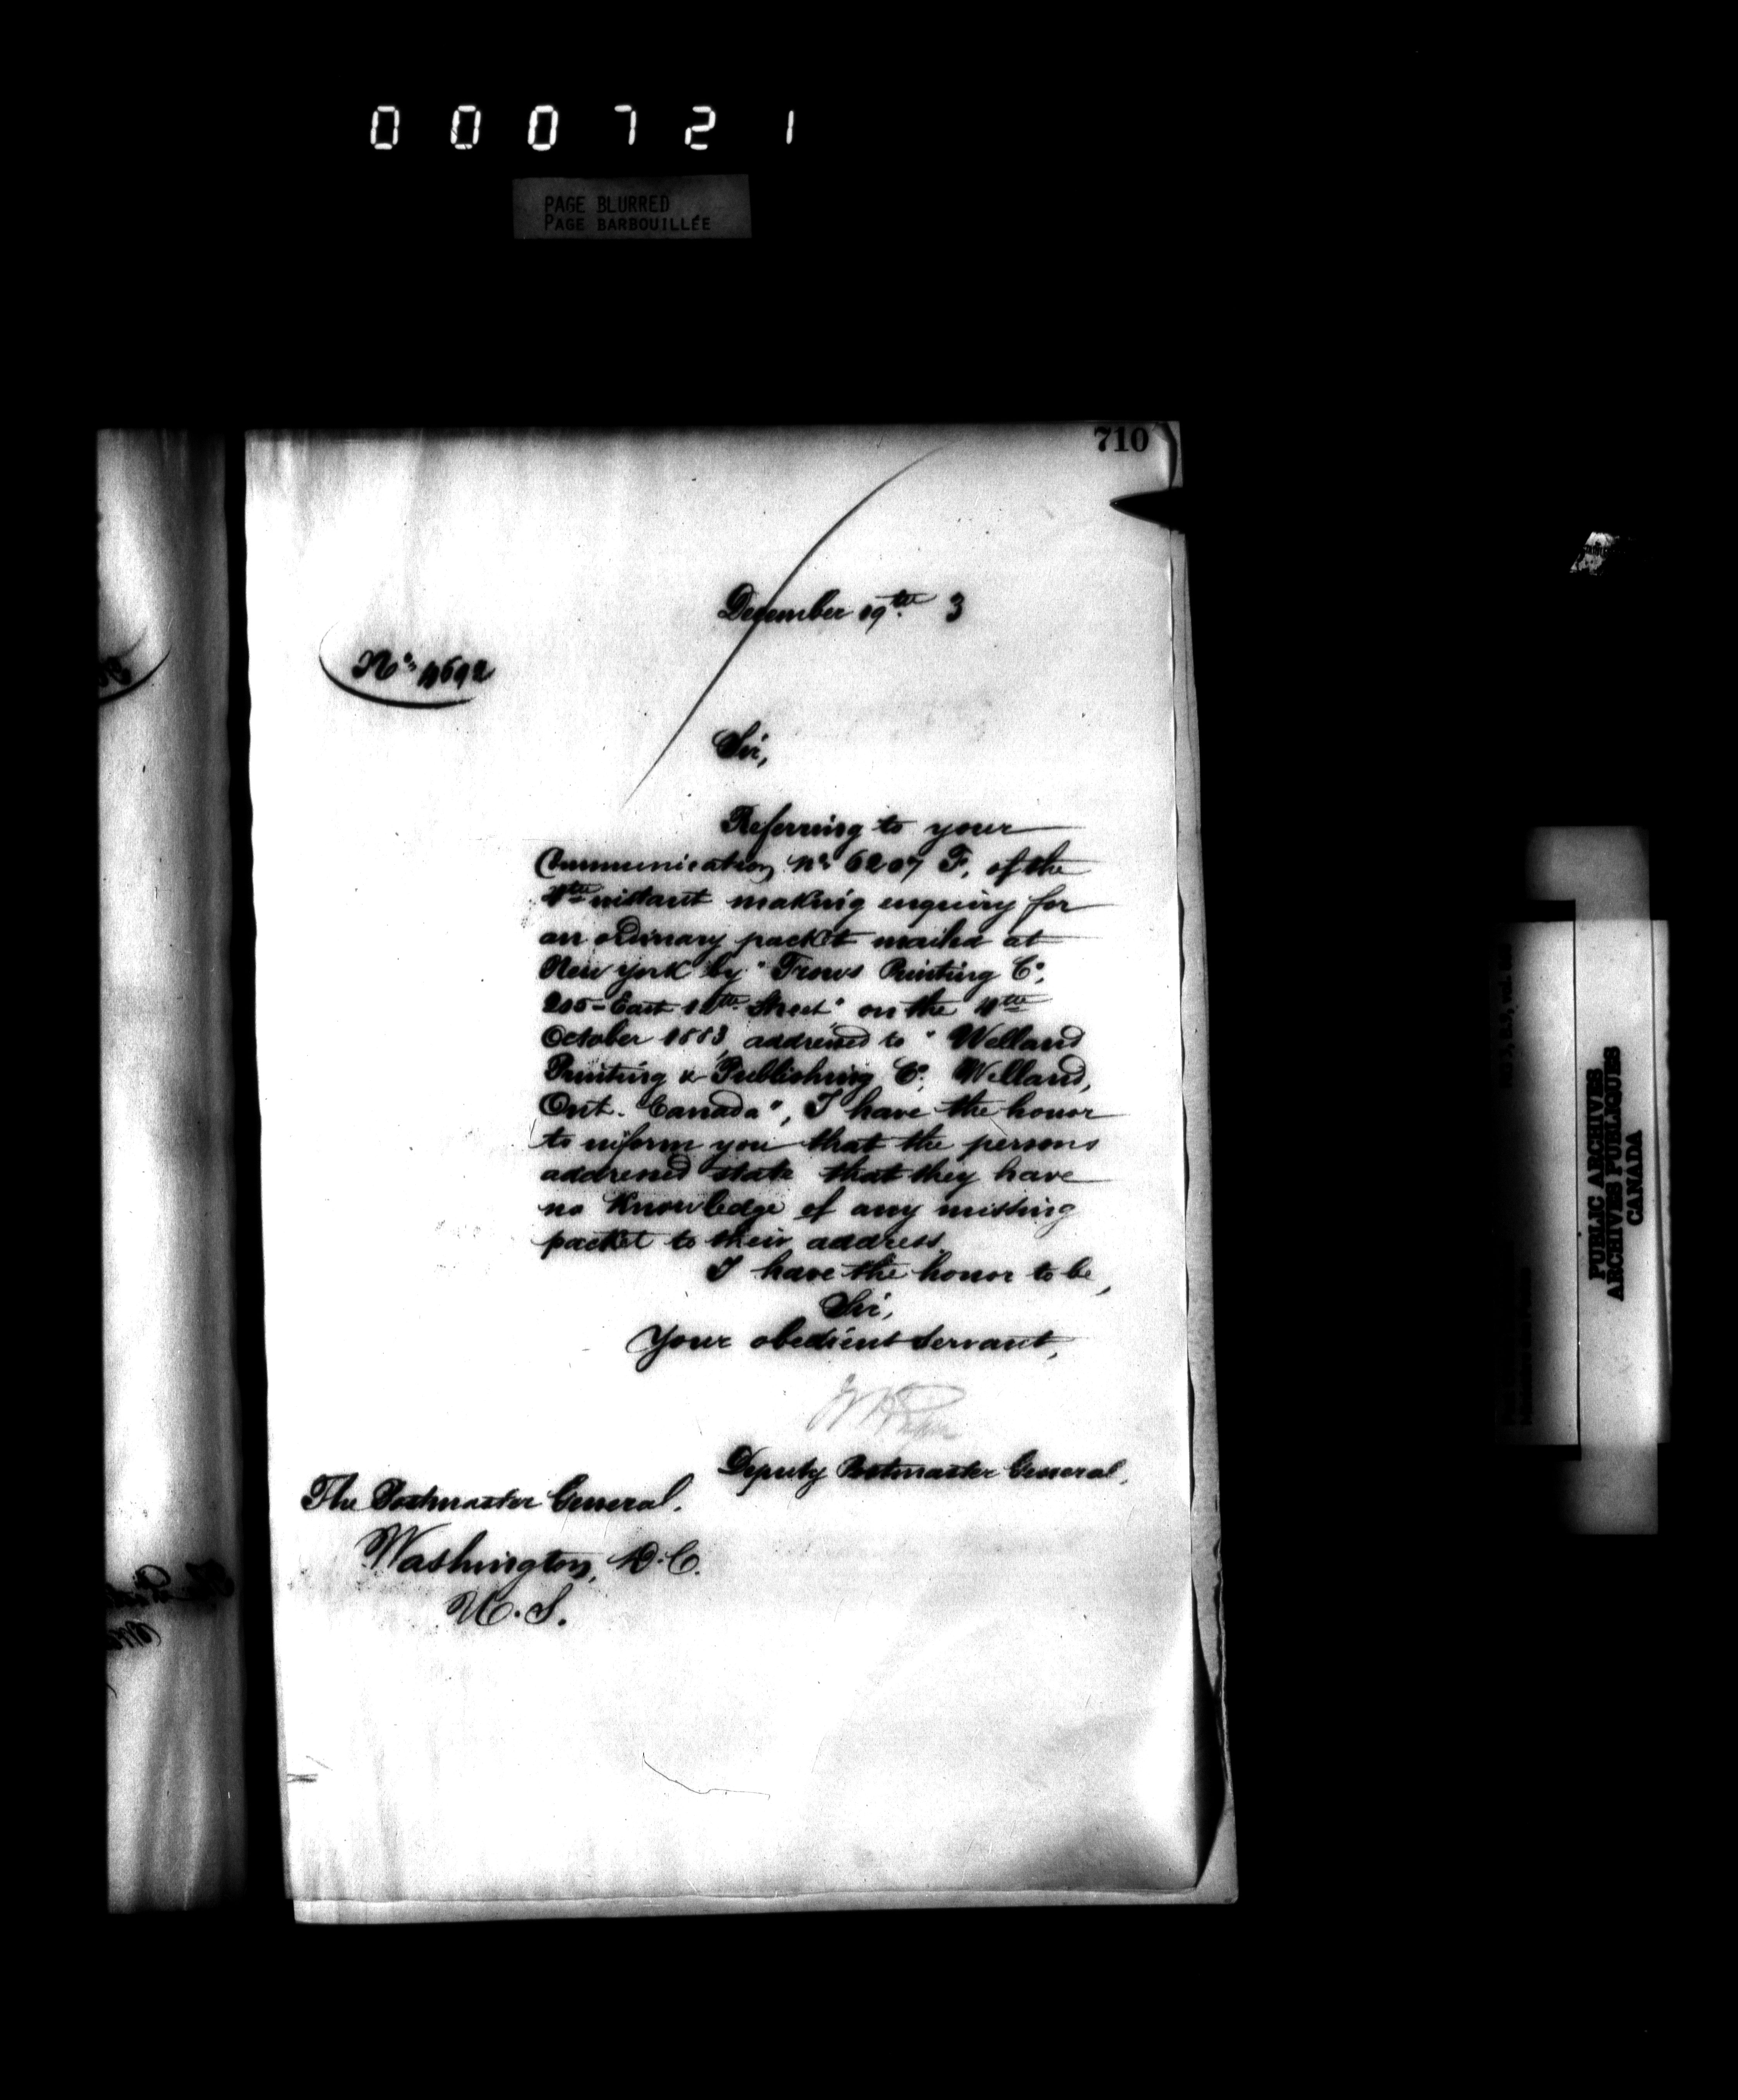 000721
PAGE BLURRED
PAGE BARBOUILLÉE
710
December 19th 3
No. 4692
Sir,
Referring to your
Communication No 6207 F. of the
4th instant making enquiry for
an ordinary packet mailed at
New York by "Trows Printing Co.
205 - East 12th Street" on the 4th
October 1883, addressed to "Welland
Printing & Publishing Co. Welland,
Ont. Canada", I have the honor
to inform you that the persons
addressed state that they have
no Knowledge of any missing
packet to their address.
I have the honor to be,
Sir,
Your obedient Servant,
Deputy Postmaster General.
The Postmaster General.
Washington, D.C.
U.S.
PUBLIC ARCHIVES
ARCHIVES PUBLIQUES
CANADA